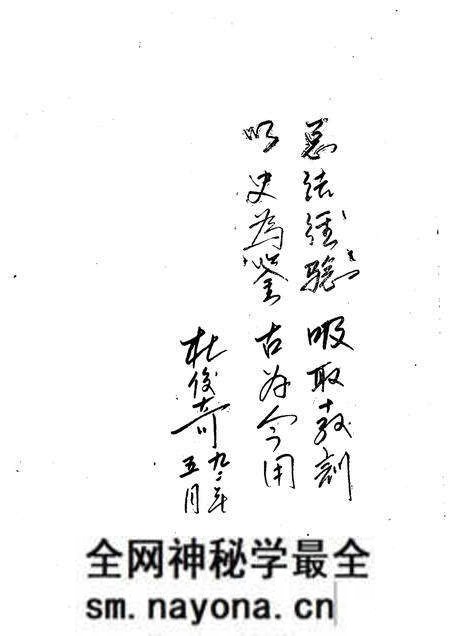 总结经验 吸取教训
以史为鉴 古为今用
杜俊奇
九二年
五月
全网神秘学最全
sm.nayona.cn